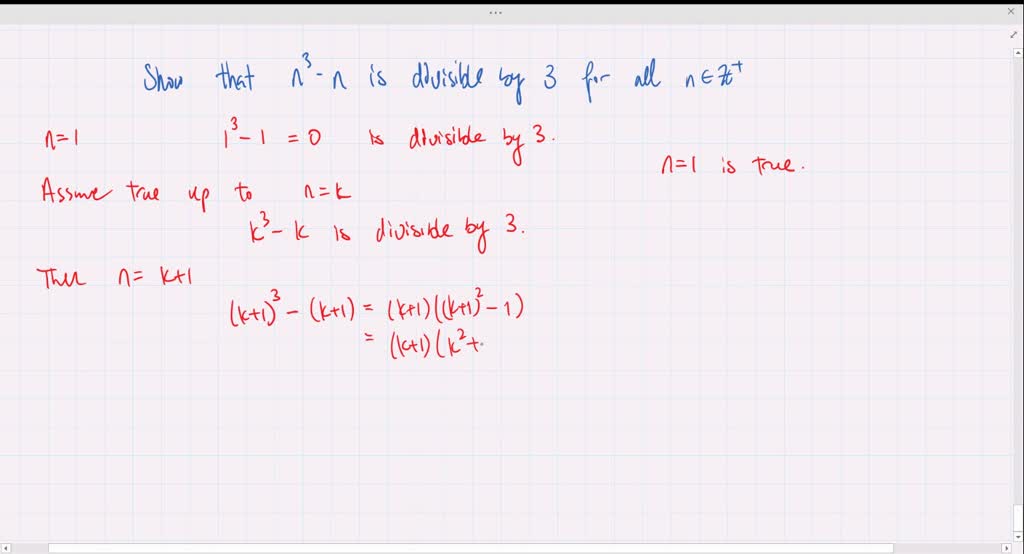 Show that n³ - n is divisible by 3 for all n ∈ ℤ⁺
n=1 1³ - 1 = 0 is divisible by 3.
n=1 is true.
Assume true up to n=k
k³ - k is divisible by 3.
Then n = k+1
(k+1)³ - (k+1) = (k+1)((k+1)² - 1)
= (k+1)(k² +